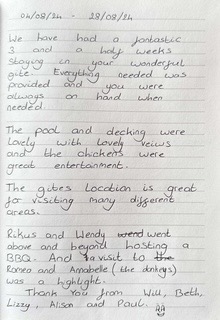 04/08/24 - 28/08/24
We have had a fantastic
3 and a half weeks
Staying in your wonderful
gite. Everything needed was
provided and you were
always on hand when
needed.
The pool and decking were
lovely with lovely veiws
and the chickens were
great entertainment.
The gites location is great
for visiting many different
areas.
Rikus and Wendy went
above and beyond hosting a
BBQ. And a visit to
Romeo and Annabelle (the donkeys)
was a highlight.
Thank you from Will, Beth,
Lizzy, Alison and Paul.